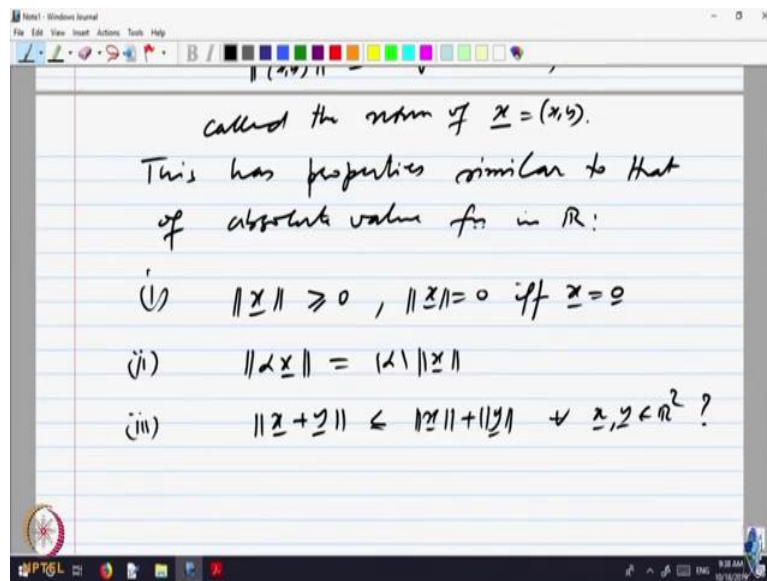 Note1 - Windows Journal
File Edit View Insert Actions Tools Help
B I
called the norm of x = (x,y).
This has properties similar to that
of absolute value fn in ℝ:
(i) ||x|| ≥ 0 , ||x|| = 0 iff x = 0
(ii) ||αx|| = |α| ||x||
(iii) ||x + y|| ≤ ||x|| + ||y|| ∀ x, y ∈ ℝ² ?
NPTEL
ENG
9:38 AM